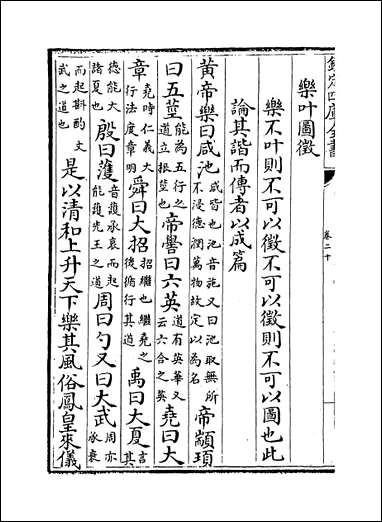 欽定四庫全書
卷二十
樂叶圖徵
樂不叶則不可以徵不可以徵則不可以圖也此
論其諧而傳者以成篇
黄帝樂曰咸池咸皆也池音施又曰池取無所不浸德潤萬物故定以為名帝顓頊
曰五莖能為五行之道立根莖也帝嚳曰六英道有英華又云六合之英堯曰大
章堯時仁義大行法度章明舜曰大招招繼也繼堯之後循行其道禹曰大夏言其
德能大諸夏也殷曰頀音頀承衰而起能頀先王之道周曰勺又曰大武周亦承衰
而起斟酌文武之道也是以清和上升天下樂其風俗鳳皇來儀